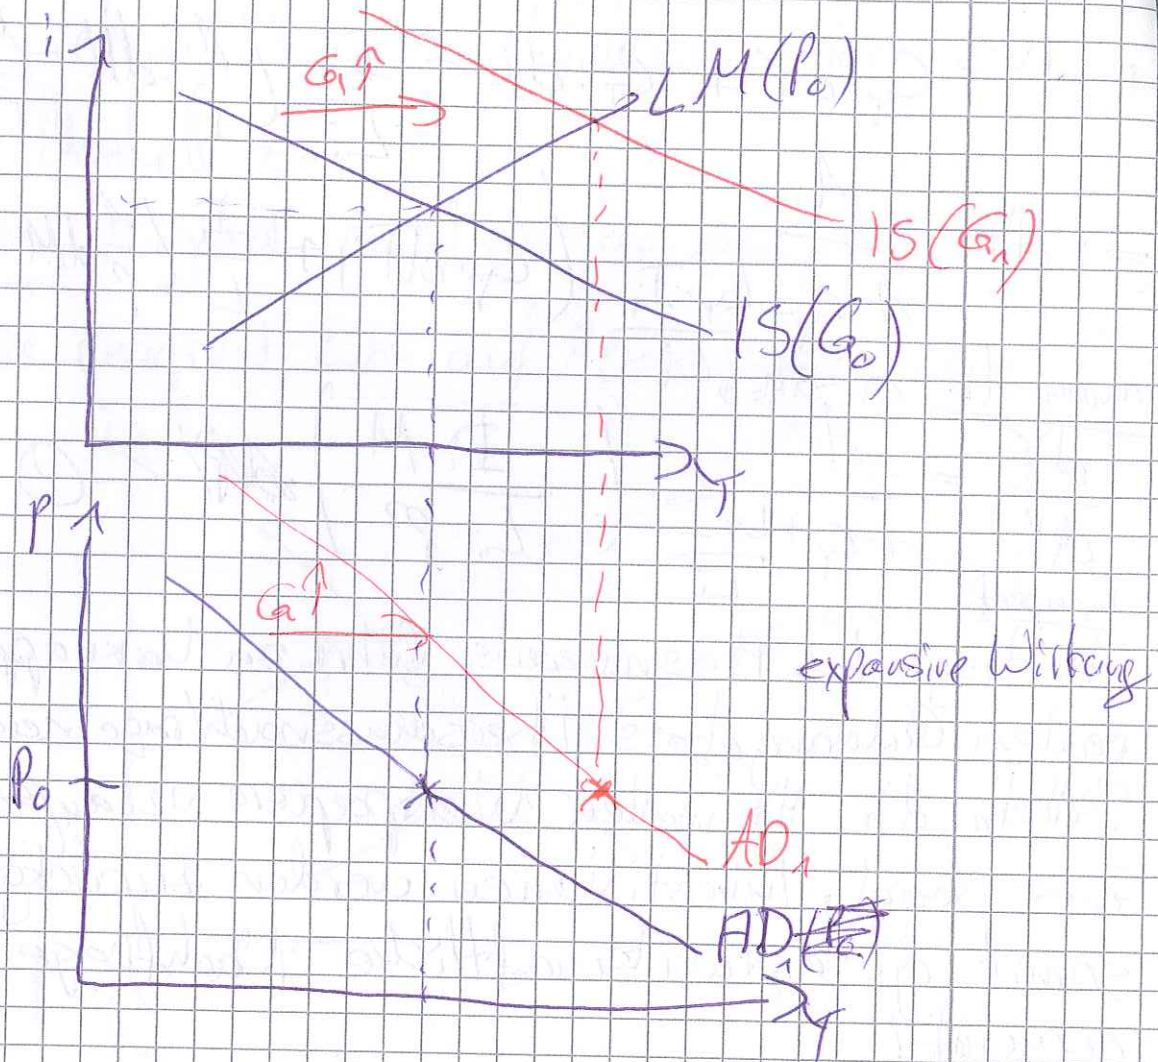 i
G↑
LM(P₀)
IS(G₁)
IS(G₀)
Y
P
G↑
expansive Wirkung
P₀
AD₁
AD₁
Y